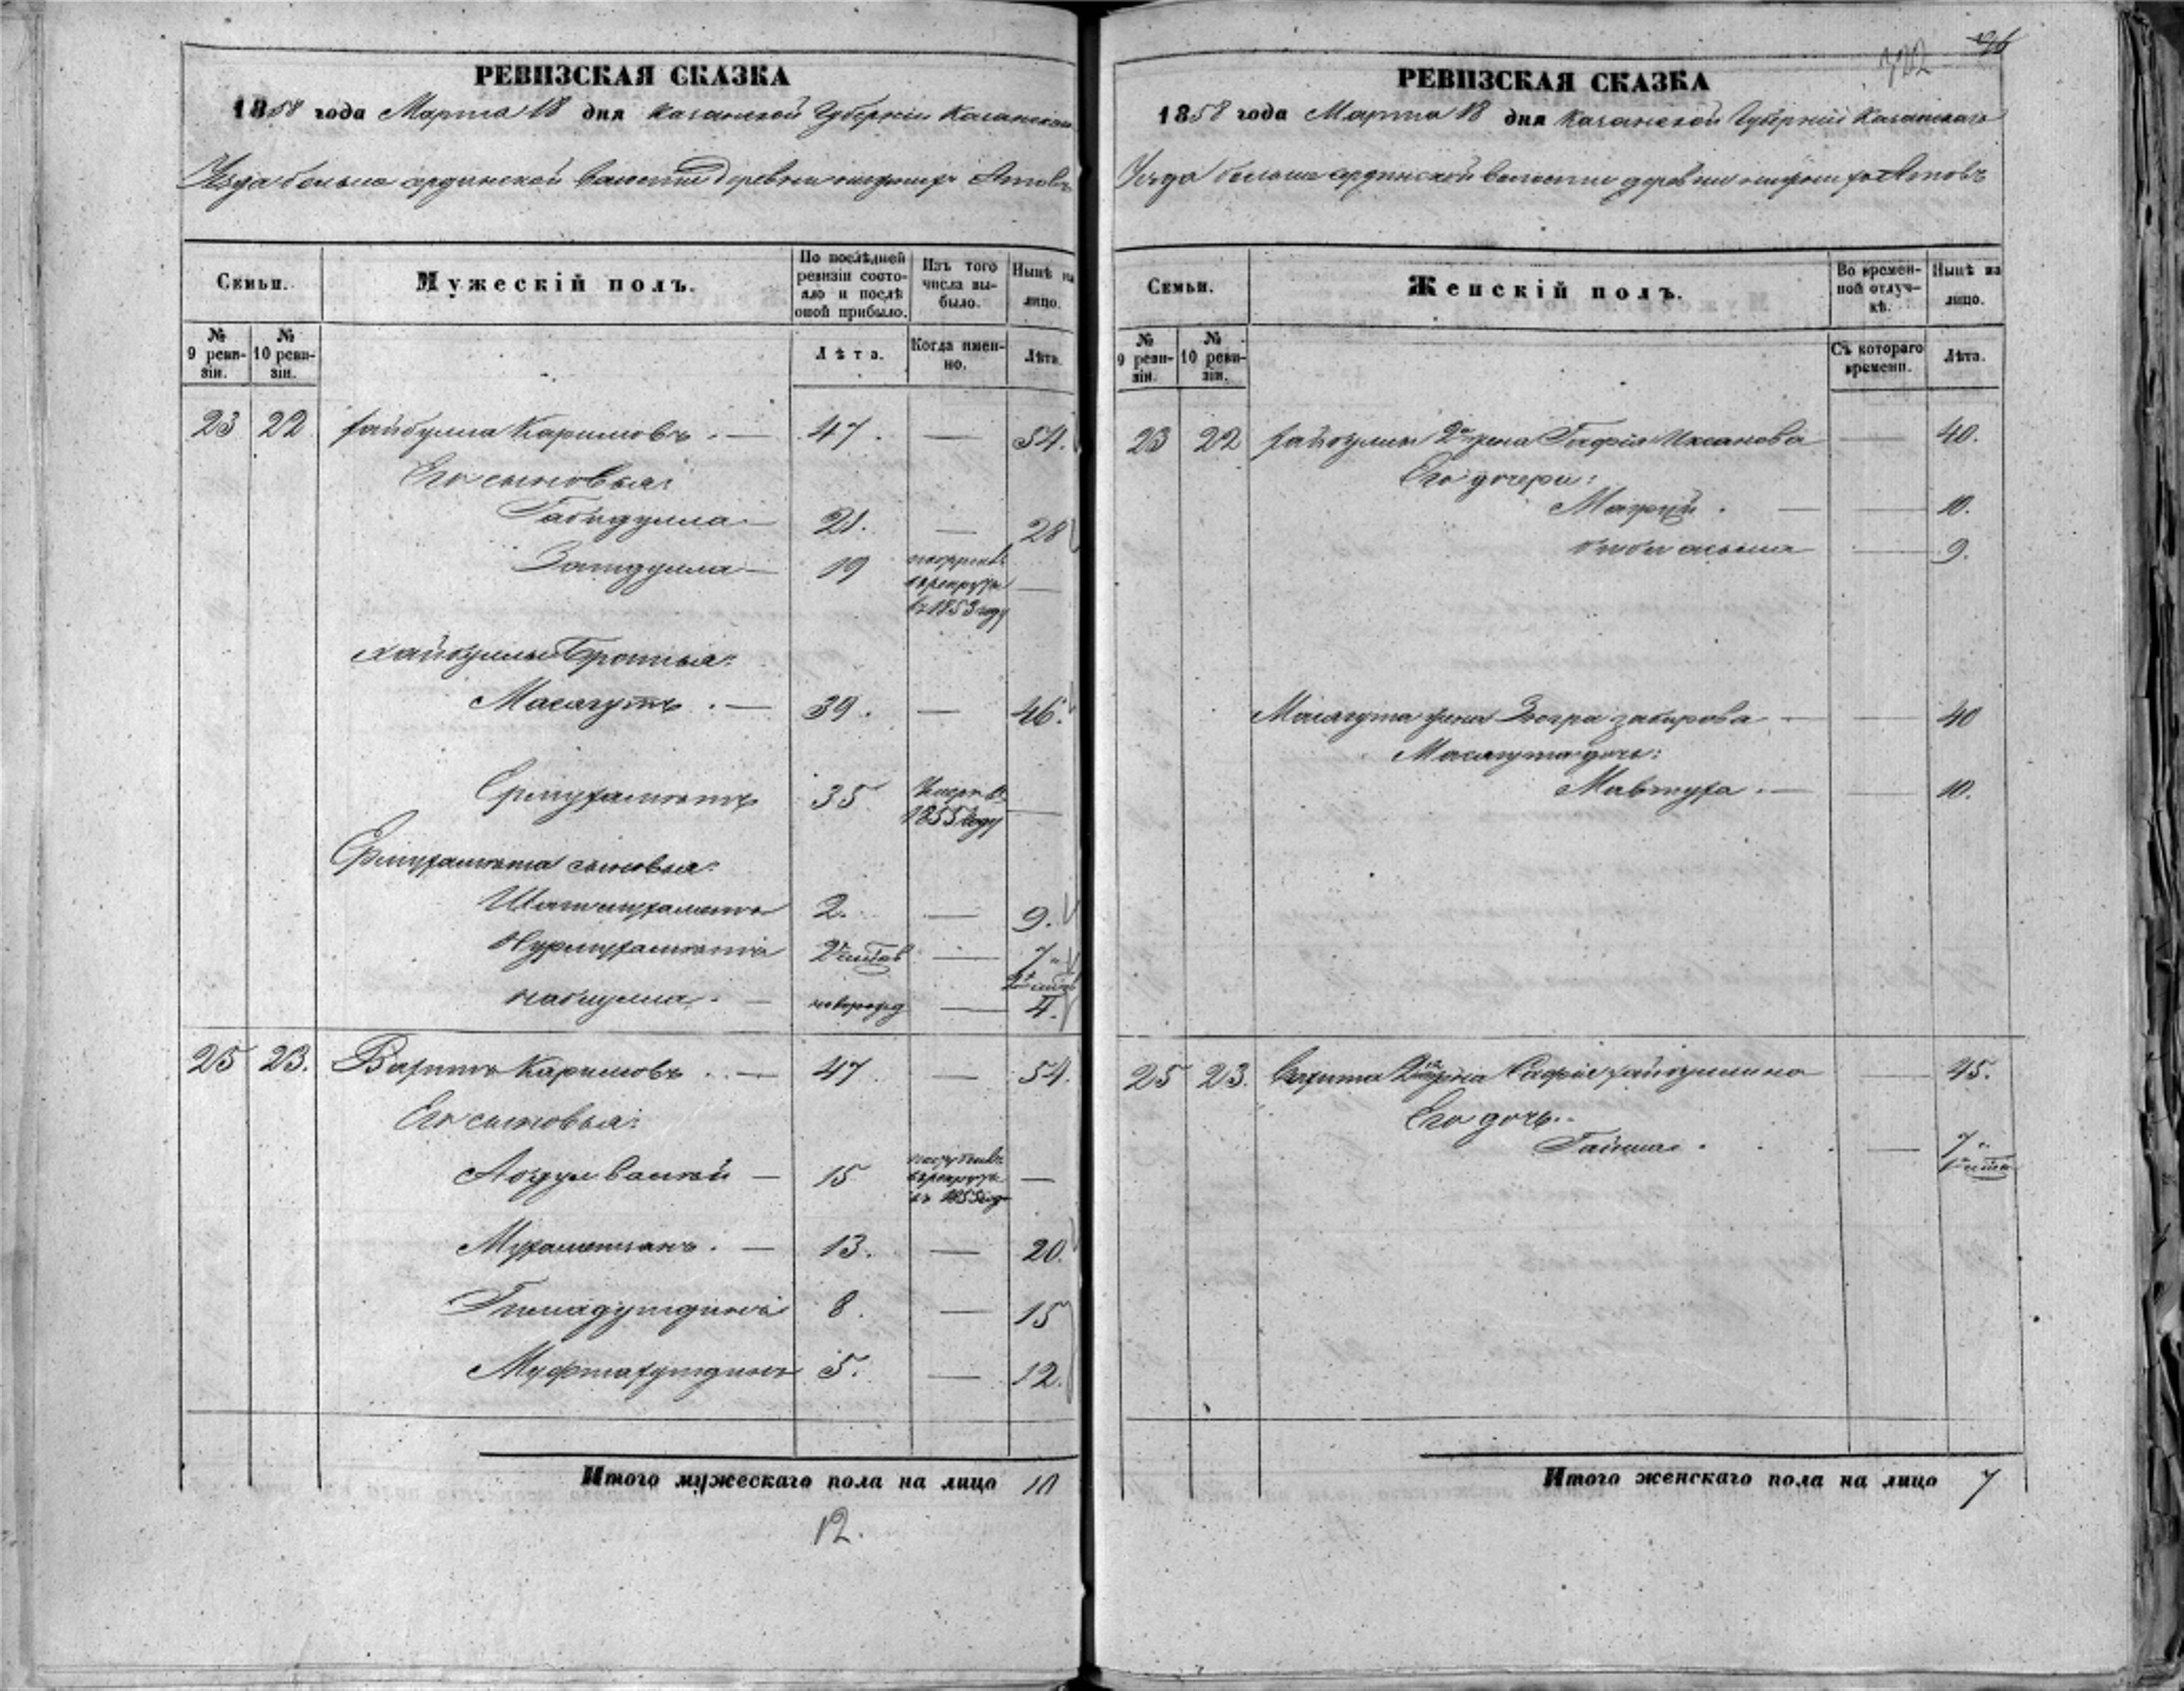 РЕВИЗСКАЯ СКАЗКА
1858 года Марта 18 дня Казанской Губернии Казанскаго
Уезда больше ординской волости деревни Атовъ
Семьи. Мужескій полъ. По послѣдней ревизіи состояло и послѣ оной прибыло. Изъ того числа выбыло. Нынѣ на лицо.
№ 9 ревизіи. № 10 ревизіи. Лѣта. Когда именно. Лѣта.
23 22 хайбулла Каримовъ . — 47. — 54.
Его сыновья:
Габидулла — 21. — 28
Загидулла — 19 въ рекруты въ 1853 году —
хайбуллы братья:
Масагутъ . — 39. — 46.
Ермухаметъ 35 Умеръ въ 1855 году —
Ермухамета сыновья:
Шагимухаметъ 2. — 9.
Нурмухаметъ — 7
набиулла . — новорожд — 4.
25 23. Вахитъ Каримовъ . — 47 — 54.
Его сыновья:
Абдулвалей — 15 въ рекруты въ 1855 году —
Мухаметшанъ . — 13. — 20.
Гимадутдинъ 8. — 15
Мифтахутдинъ 5. — 12.
Итого мужескаго пола на лицо 10
12.
РЕВИЗСКАЯ СКАЗКА
1858 года Марта 18 дня Казанской Губерніи Казанскаго
Уезда больше ординской волости деревни Атовъ
Семьи. Женскій полъ. Во временной отлучкѣ. Нынѣ на лицо.
№ 9 ревизіи. № 10 ревизіи. Съ котораго времени. Лѣта.
23 22 хайбуллы 2я жена Гафія Ихсанова — 40.
Его дочери:
— — 10.
— 9.
Масагута жена Зюгра забирова — — 40
Масагута дочь:
Мавтуха . — — 10.
25 23. Вахита жена Сафія хайбуллина — 45.
Его дочь.
Гайша . — 7
Итого женскаго пола на лицо 7